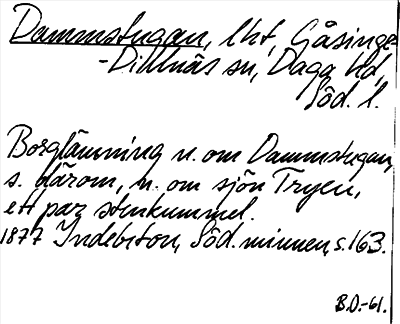 Dammstugan, lht, Gåsinge-
-Dillnäs sn, Daga hd,
Söd. l.
Borglämning n. om Dammstugan,
s. därom, n. om sjön Tryen,
ett par stenkummel.
1877 Indebetou, Söd. minnen, s. 163.
B.D.-61.